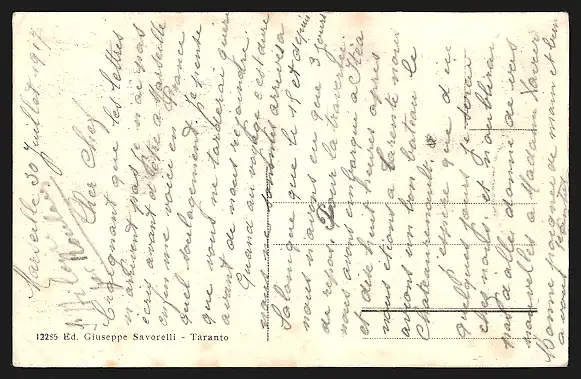 Marseille 30 Juillet 1917
Cher Chef
Craignant que les lettres
n'arrivent pas je n'ai pas
écris avant d'être à Marseille
enfin me voici en France
quel soulagement. Je pense
que vous ne tarderai guère
avant de nous rejoindre.
Quand au voyage c'est dire
que nous ne sommes arrives a
Salonique que le 15 et depuis
nous n'avons eu que 3 jours
de repos. Pour la traversée
nous avons embarqué à Itéa
et dix huit heures après
nous étions à Tarente nous
avions un bon bateau le
Chateaurenault.
J'espère que d'ici
quelques jours je serai
chez nous et n'oublirai
pas d'aller donner de vos
nouvelles à Madame Xavier
Bonne poignée de main et bien
a vous
12285 Ed. Giuseppe Savorelli - Taranto